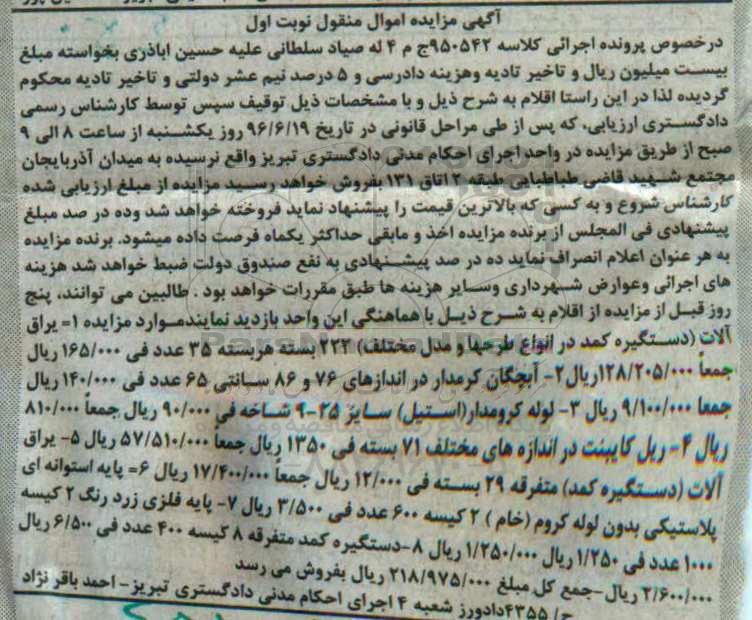 آگهی مزایده اموال منقول نوبت اول
درخصوص پرونده اجرائی کلاسه ۹۵۰۵۴۲ج م ۴ له صیاد سلطانی علیه حسین اباذری بخواسته مبلغ
بیست میلیون ریال و تاخیر تادیه وهزینه دادرسی و ۵ درصد نیم عشر دولتی و تاخیر تادیه محکوم
گردیده لذا در این راستا اقلام به شرح ذیل و با مشخصات ذیل توقیف سپس توسط کارشناس رسمی
دادگستری ارزیابی، که پس از طی مراحل قانونی در تاریخ ۹۶/۶/۱۹ روز یکشنبه از ساعت ۸ الی ۹
صبح از طریق مزایده در واحد اجرای احکام مدنی دادگستری تبریز واقع نرسیده به میدان آذربایجان
مجتمع شهید قاضی طباطبایی طبقه ۲ اتاق ۱۳۱ بفروش خواهد رسید مزایده از مبلغ ارزیابی شده
کارشناس شروع و به کسی که بالاترین قیمت را پیشنهاد نماید فروخته خواهد شد وده در صد مبلغ
پیشنهادی فی المجلس از برنده مزایده اخذ و مابقی حداکثر یکماه فرصت داده میشود. برنده مزایده
به هر عنوان اعلام انصراف نماید ده در صد پیشنهادی به نفع صندوق دولت ضبط خواهد شد هزینه
های اجرائی وعوارض شهرداری وسایر هزینه ها طبق مقررات خواهد بود . طالبین می توانند، پنج
روز قبل از مزایده از اقلام به شرح ذیل با هماهنگی این واحد بازدید نمایندموارد مزایده ۱= یراق
آلات (دستگیره کمد در انواع طرحها و مدل مختلف) ۲۲۲ بسته هربسته ۳۵ عدد فی ۱۶۵/۰۰۰ ریال
جمعاً ۱۲۸/۲۰۵/۰۰۰ریال۲- آبچگان کرمدار در اندازهای ۷۶ و ۸۶ سانتی ۶۵ عدد فی ۱۴۰/۰۰۰ ریال
جمعا ۹/۱۰۰/۰۰۰ ریال ۳- لوله کرومدار(استیل) سایز ۲۵-۹ شاخه فی ۹۰/۰۰۰ ریال جمعاً ۸۱۰/۰۰۰
ریال ۴- ریل کابینت در اندازه های مختلف ۷۱ بسته فی ۱۳۵۰ ریال جمعاً ۵۷/۵۱۰/۰۰۰ ریال ۵- یراق
آلات (دستگیره کمد) متفرقه ۲۹ بسته فی ۱۲/۰۰۰ ریال جمعاً ۱۷/۴۰۰/۰۰۰ ریال ۶= پایه استوانه ای
پلاستیکی بدون لوله کروم (خام ) ۲ کیسه ۶۰۰ عدد فی ۳/۵۰۰ ریال ۷- پایه فلزی زرد رنگ ۲ کیسه
۱۰۰۰ عدد فی ۱/۲۵۰ ریال ۱/۲۵۰/۰۰۰ ریال ۸-دستگیره کمد متفرقه ۸ کیسه ۴۰۰ عدد فی ۶/۵۰۰ ریال
۲/۶۰۰/۰۰۰ ریال-جمع کل مبلغ ۲۱۸/۹۷۵/۰۰۰ ریال بفروش می رسد
ج/ ۴۳۵۵دادورز شعبه ۴ اجرای احکام مدنی دادگستری تبریز- احمد باقر نژاد